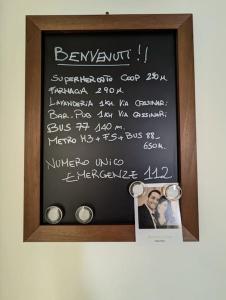 BENVENUTI !!
SUPERMERCATO COOP 250 M
FARMACIA 290 M
LAVANDERIA 1KM VIA CASSINARI
BAR. PUB 1KM VIA CASSINARI
BUS 77 140 M.
METRO M3 + FS + BUS 88
650M.
NUMERO UNICO
EMERGENZE 112